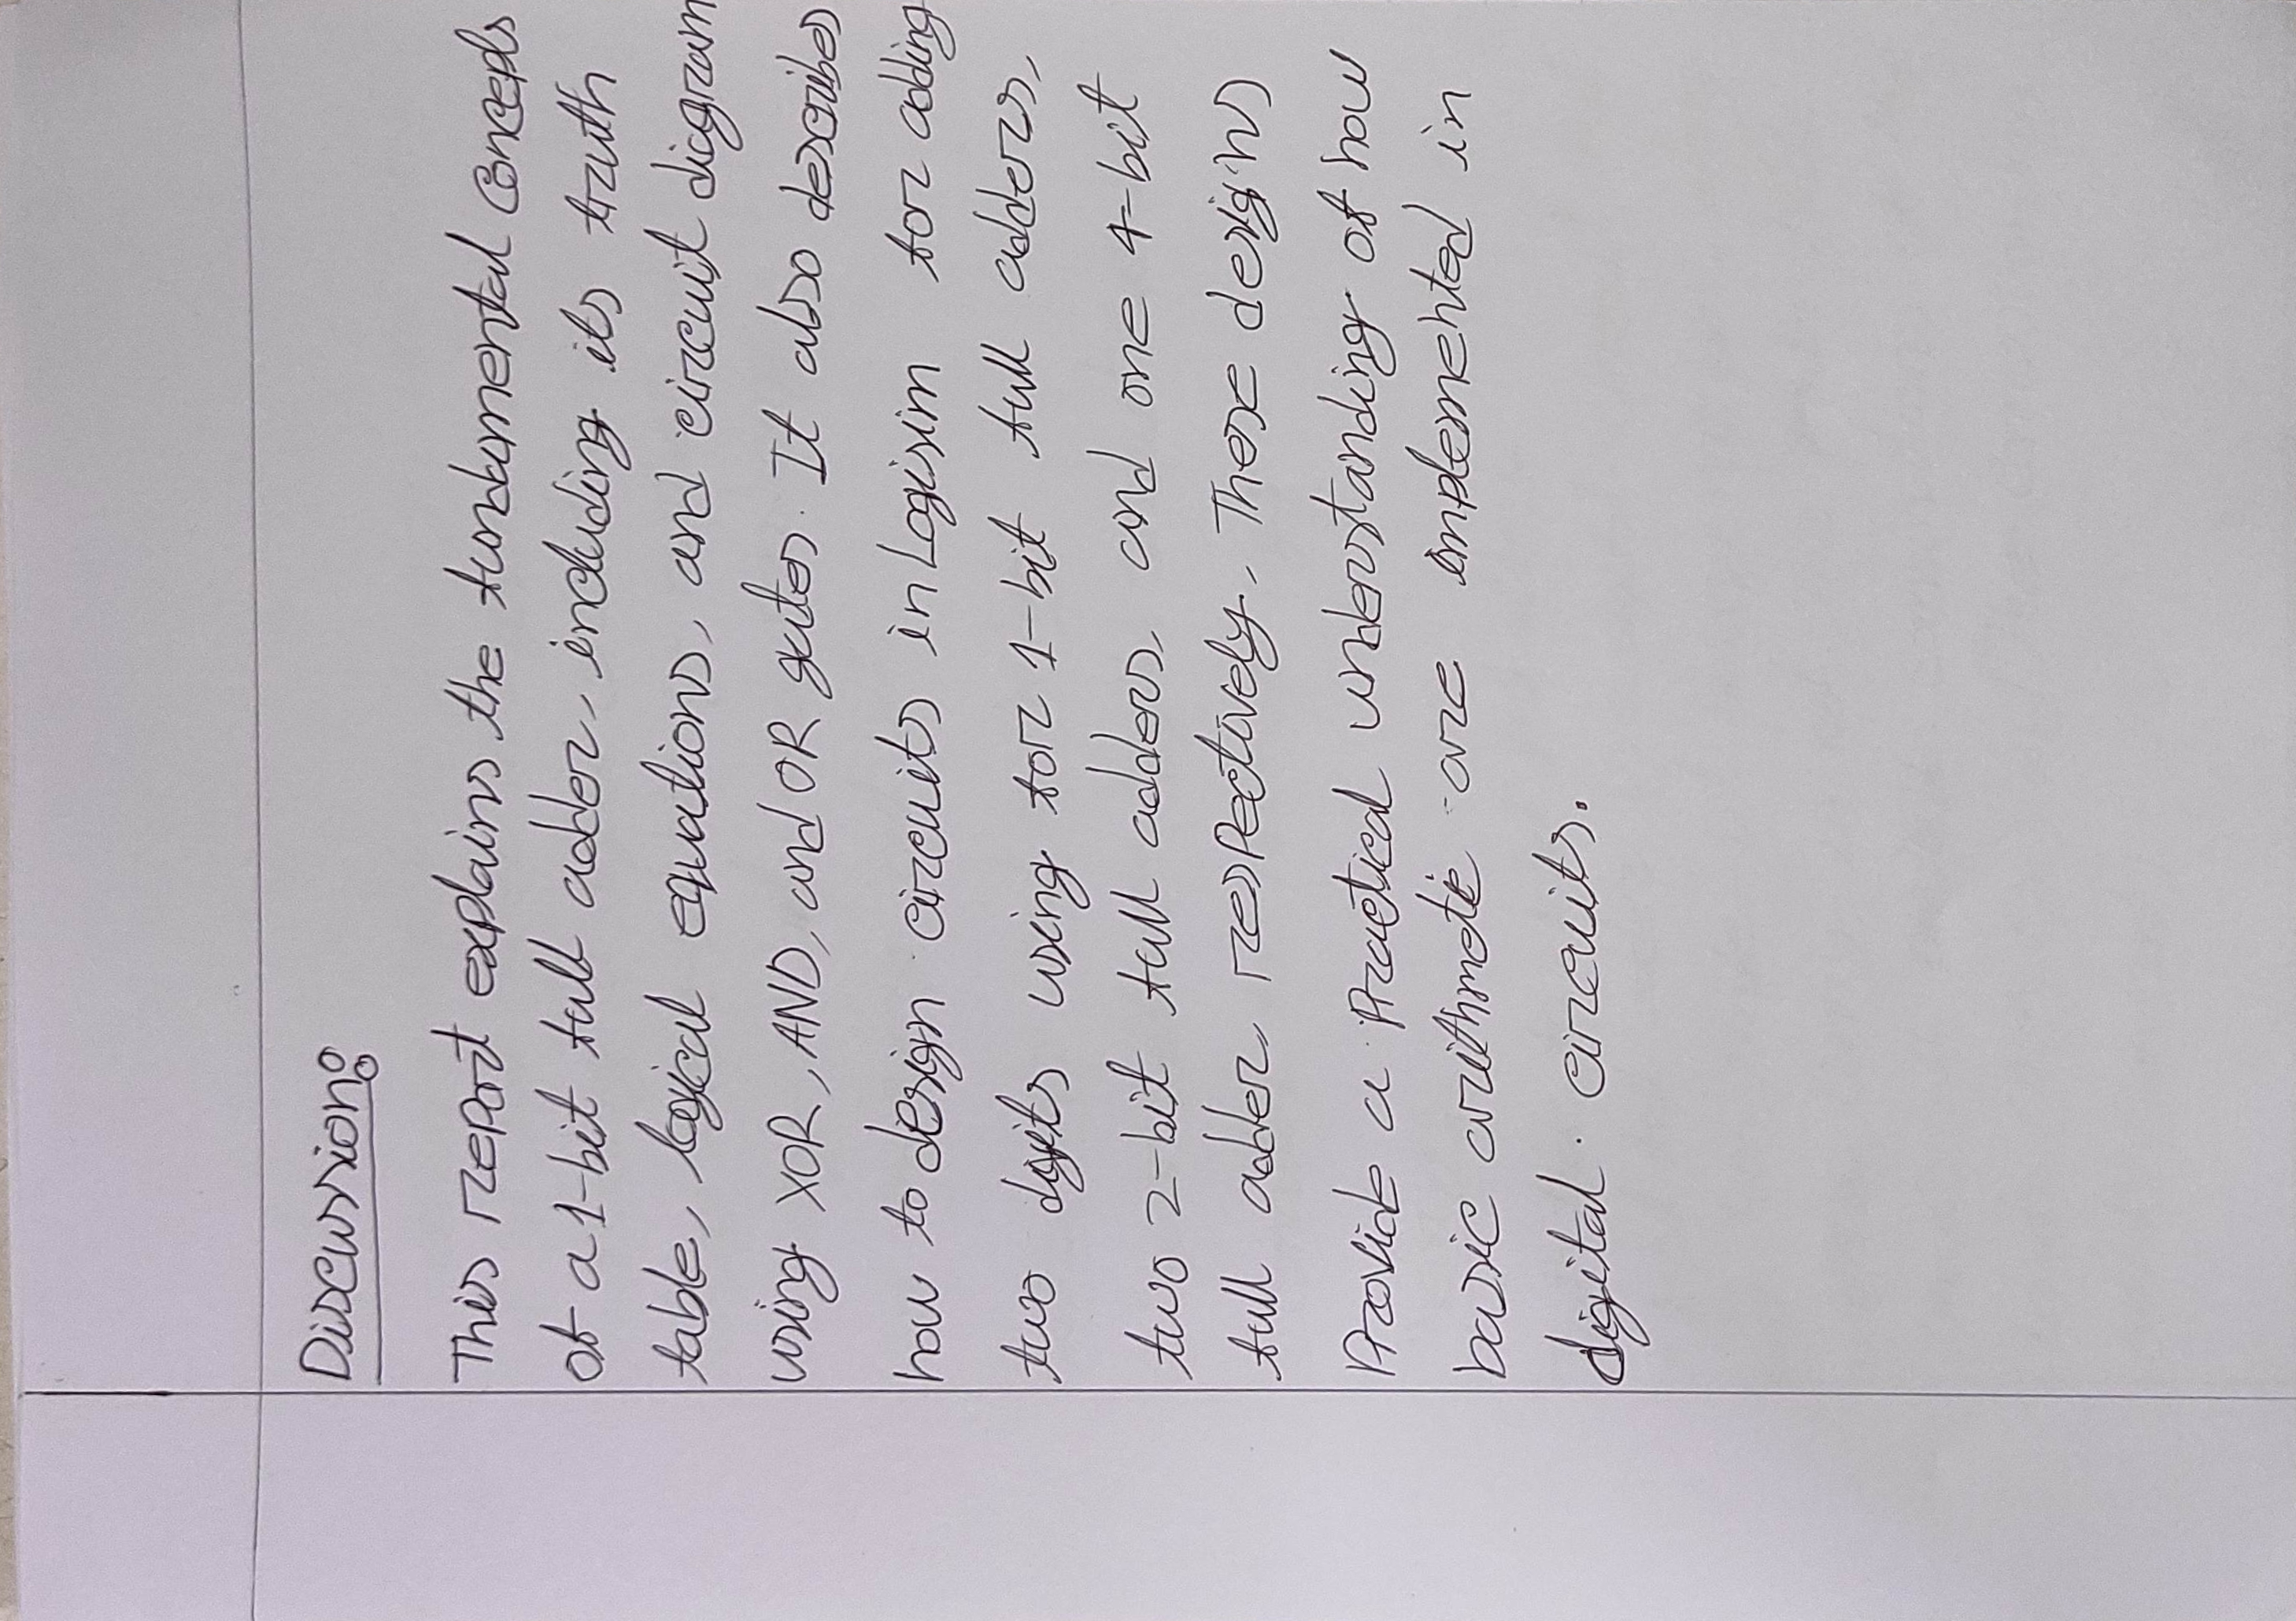 Discussion:
This report explains the fundamental concepts
of a 1-bit full adder, including its truth
table, logical equations, and circuit diagram
using XOR, AND, and OR gates. It also describes
how to design circuits in Logisim for adding
two digits using for 1-bit full adders,
two 2-bit full adders, and one 4-bit
full adder, respectively. These designs
Provide a Practical understanding of how
basic arithmetic are implemented in
digital circuits.